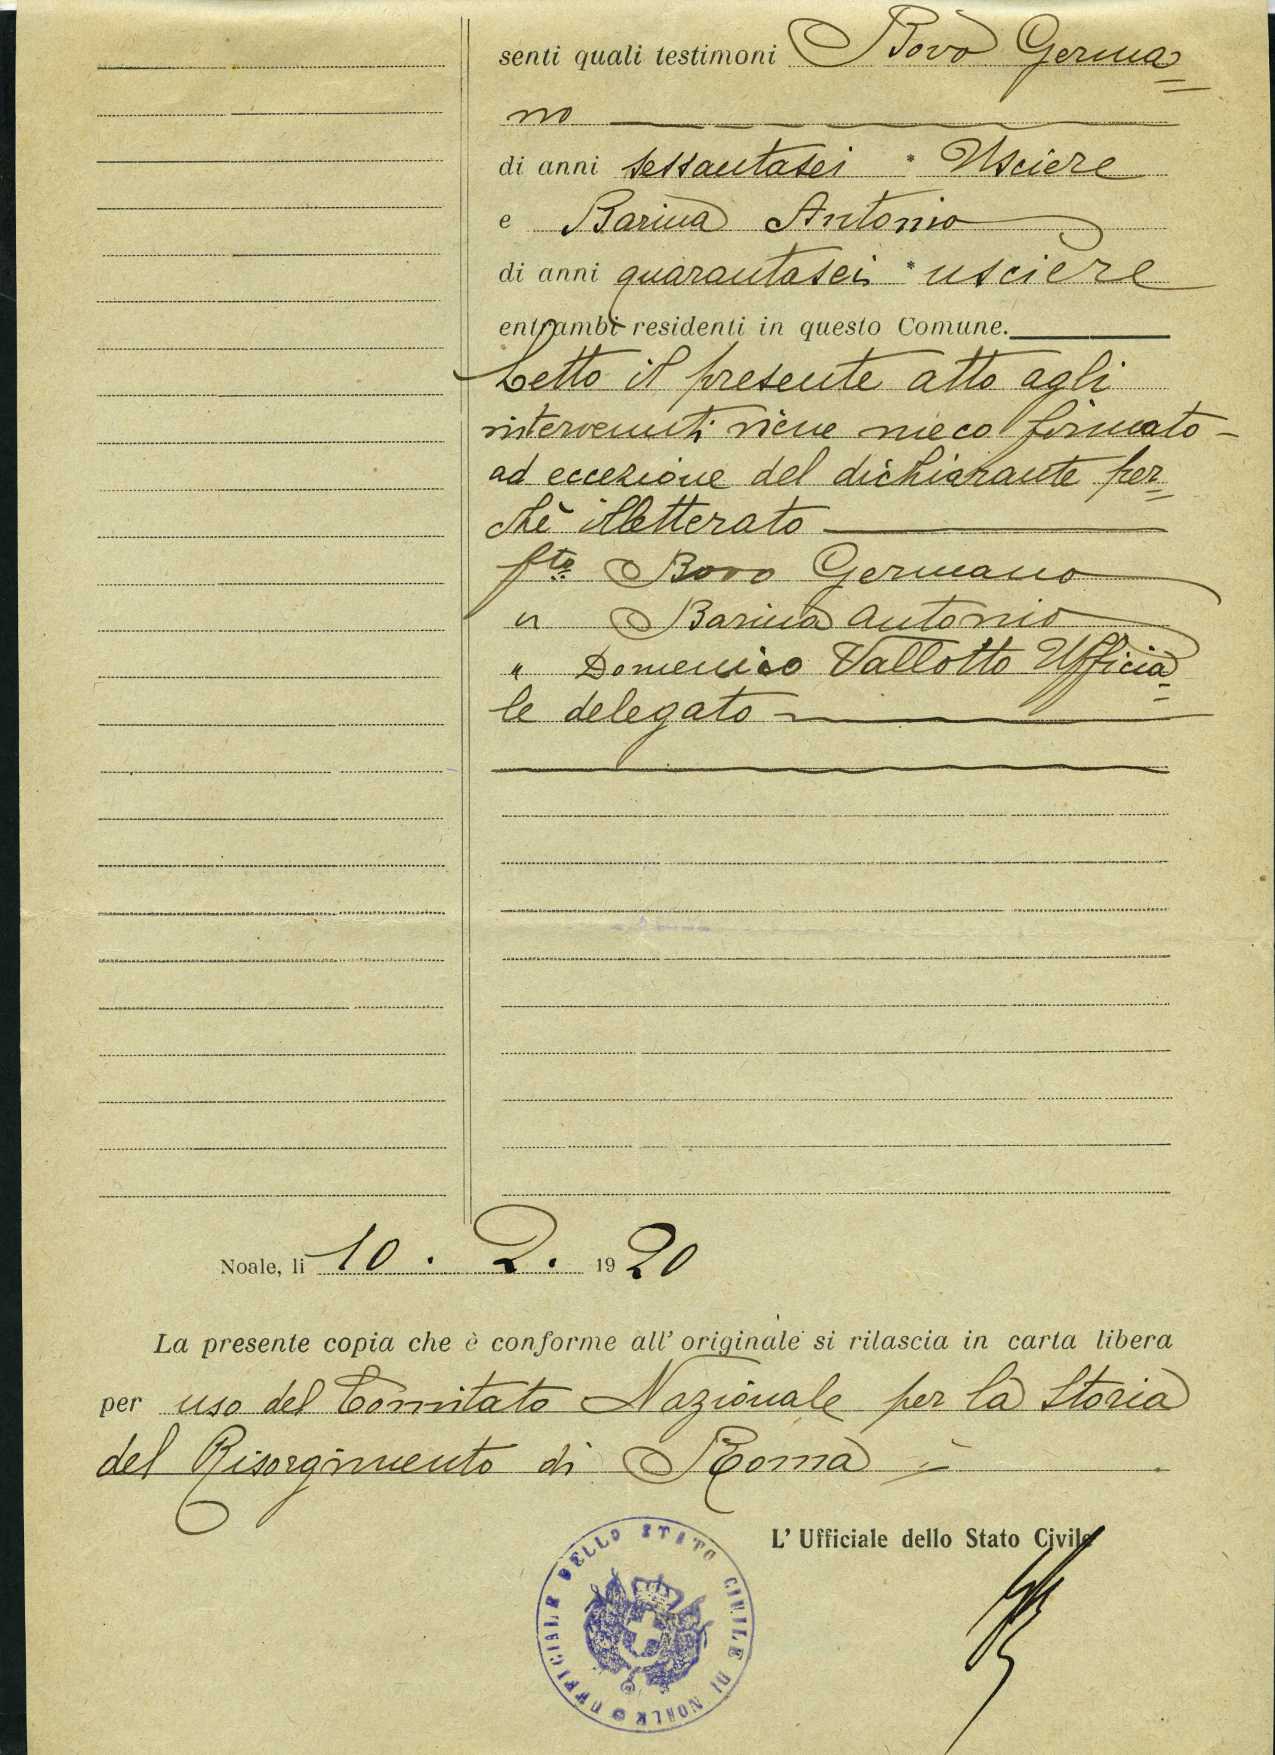 senti quali testimoni Bovo Germa=
no
di anni sessantasei * Usciere
e Barina Antonio
di anni quarantasei * usciere
entrambi residenti in questo Comune.
Letto il presente atto agli
intervenuti viene meco firmato -
ad eccezione del dichiarante per=
chè illetterato
fto Bovo Germano
" Barina Antonio
" Domenico Vallotto Ufficia=
le delegato
Noale, li 10 . 2 . 1920
La presente copia che è conforme all' originale si rilascia in carta libera
per uso del Comitato Nazionale per la Storia
del Risorgimento di Roma
L' Ufficiale dello Stato Civile
UFFICIALE DELLO STATO CIVILE DI NOALE